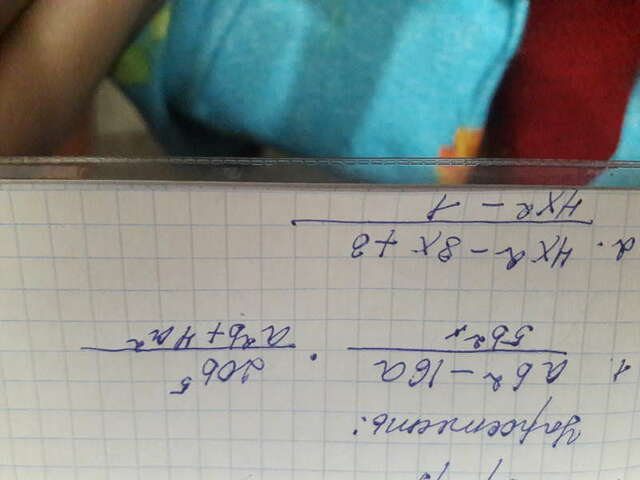 Упростить:
1. ab² - 16a / 5b² · 20b⁵ / a²b + 4a²
2. 4x² - 8x + 3 / 4x² - 1